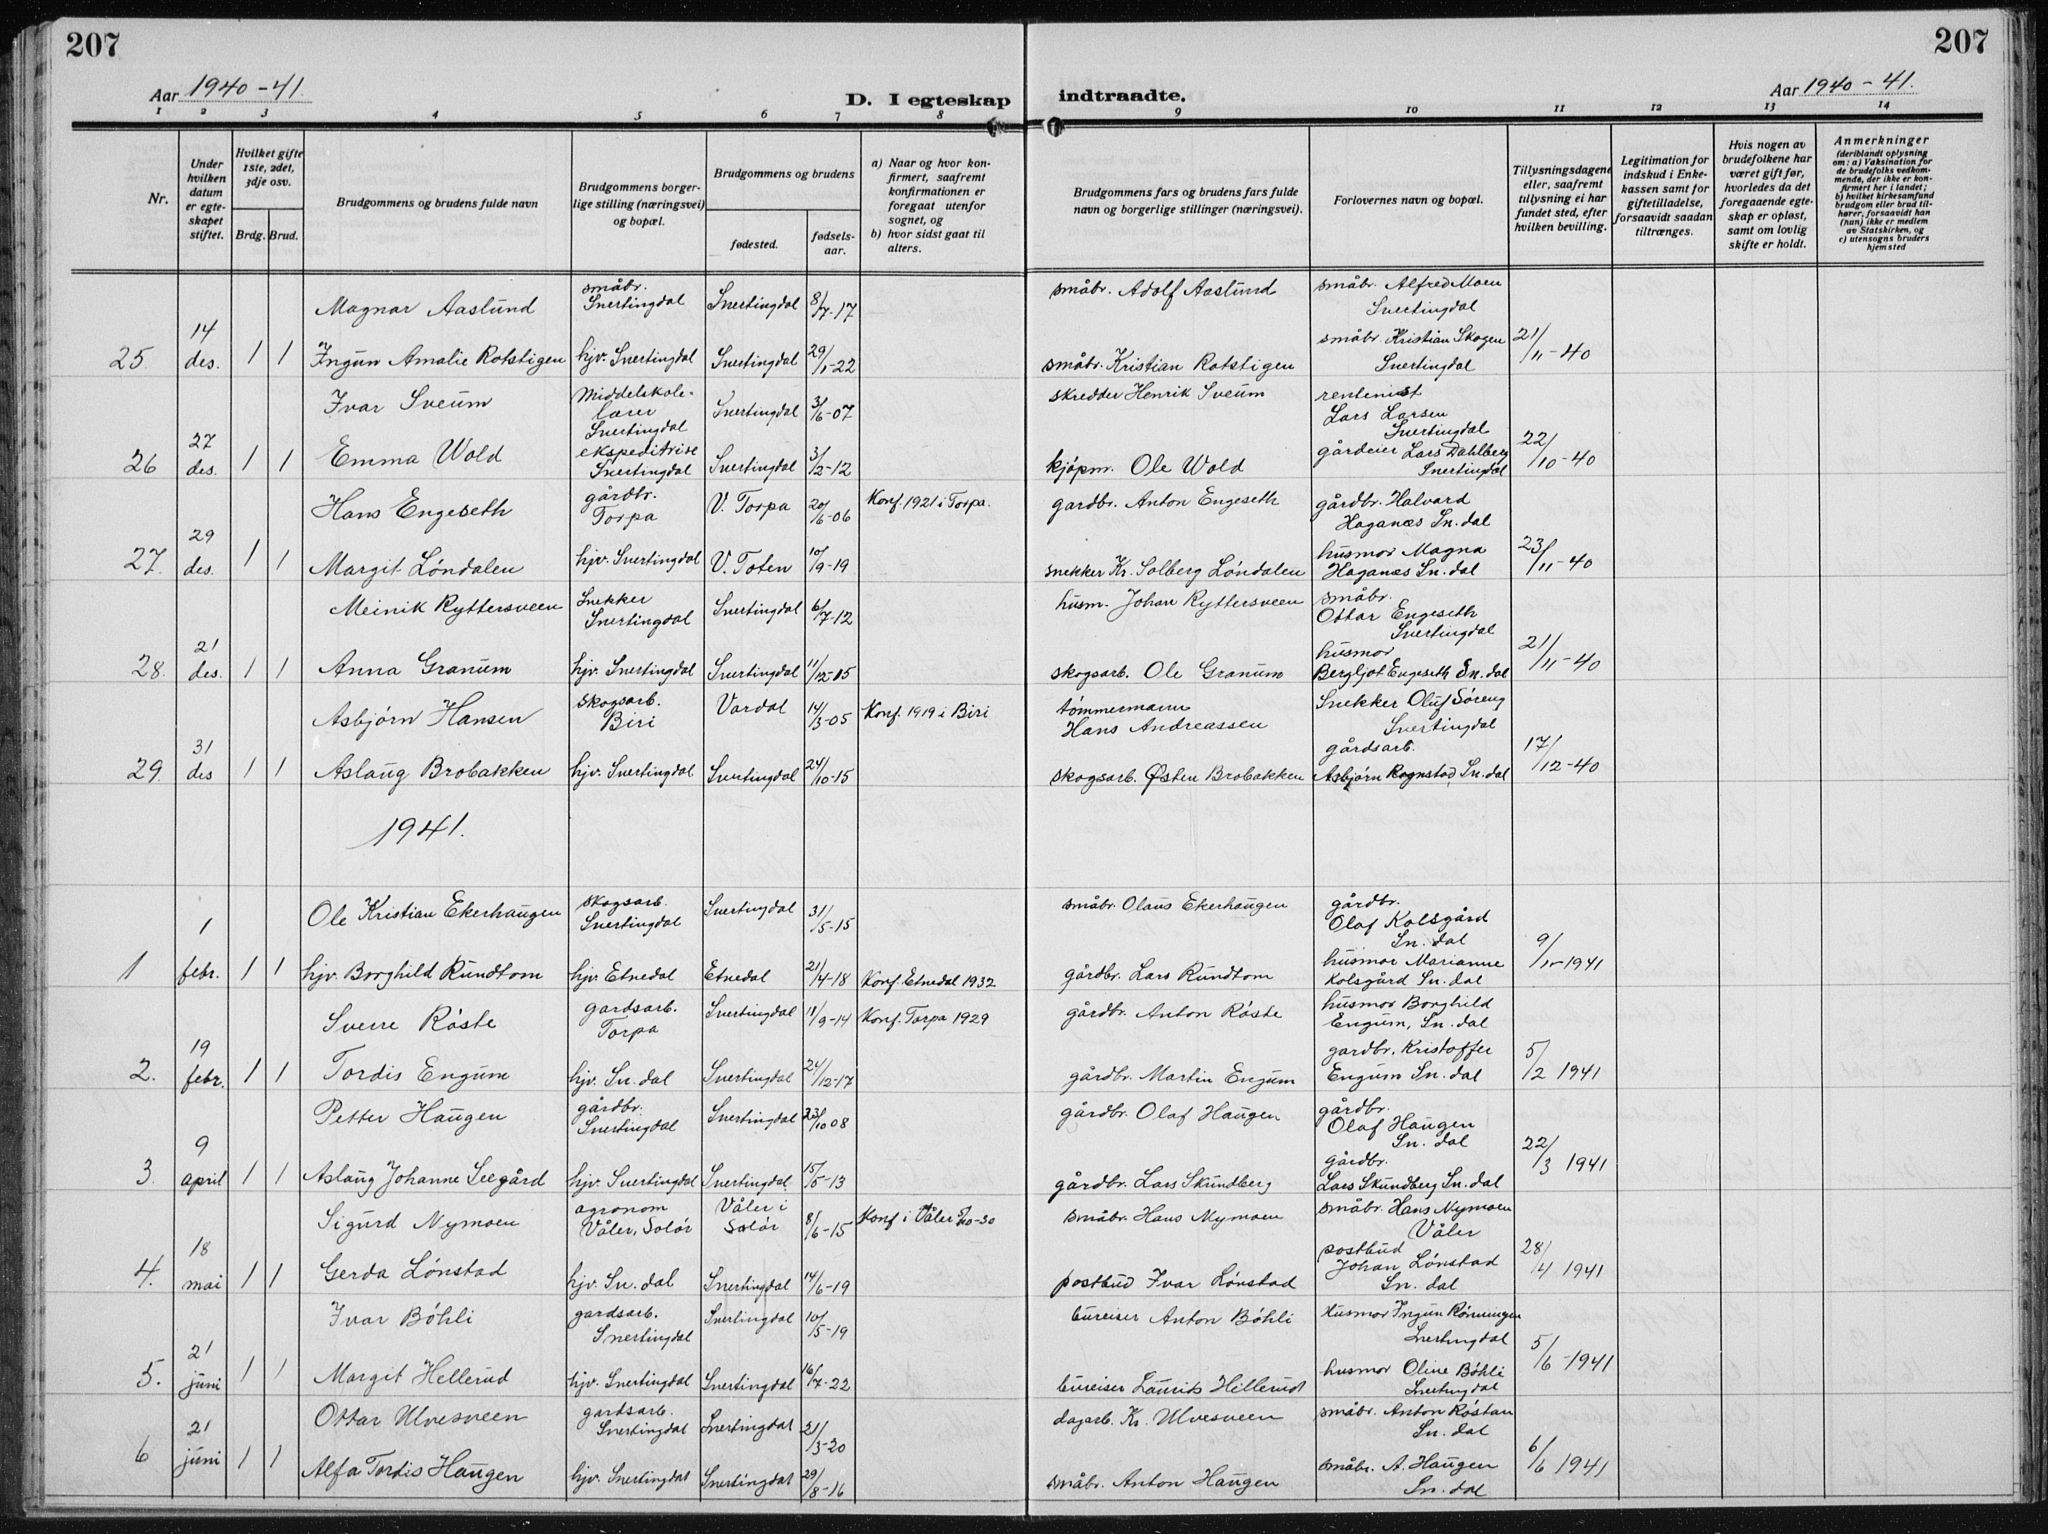 207
207
Aar 1940-41.
D. I egteskap
indtraadte.
Aar 1940-41.
1 2 3 4 5 6 7 8 9 10 11 12 13 14
Nr.
Under hvilken datum er egteskapet stiftet.
Hvilket gifte 1ste, 2det, 3dje osv.
Brdg. Brud.
Brudgommens og brudens fulde navn
Brudgommens borgerlige stilling (næringsvei) og bopæl.
Brudgommens og brudens
fødested.
fødselsaar.
a) Naar og hvor konfirmert, saafremt konfirmationen er foregaat utenfor sognet, og
b) hvor sidst gaat til alters.
Brudgommens fars og brudens fars fulde navn og borgerlige stillinger (næringsvei).
Forlovernes navn og bopæl.
Tillysningsdagene eller, saafremt tillysning ei har fundet sted, efter hvilken bevilling.
Legitimation for indskud i Enkekassen samt for giftetilladelse, forsaavidt saadan tiltrænges.
Hvis nogen av brudefolkene har været gift før, hvorledes da det foregaaende egteskap er opløst, samt om lovlig skifte er holdt.
Anmerkninger
(deriblandt oplysning om: a) Vaksination for de brudefolks vedkommende, der ikke er konfirmert her i landet; b) hvilket kirkesamfund brudgom eller brud tilhører, forsaavidt han (hun) ikke er medlem av Statskirken, og c) utensogns bruders hjemsted
Magnar Aaslund småbr. Snertingdal Snertingdal 8/7-17 småbr. Adolf Aaslund småbr. Alfred Moen Snertingdal
25 14 des. 1 1 Ingun Amalie Rotstigen hjv. Snertingdal Snertingdal 29/1-22 småbr. Kristian Rotstigen småbr. Kristian Skogen Snertingdal 21/11-40
Ivar Sveum Middelskolelærer Snertingdal Snertingdal 3/6-07 skredder Henrik Sveum rentenist Lars Larsen Snertingdal
26 27 des. 1 1 Emma Wold ekspeditrise Snertingdal Snertingdal 3/2-12 kjøpm. Ole Wold gårdeier Lars Dahlberg Snertingdal 22/10-40
Hans Engeseth gårdbr. Torpa V. Torpa 20/6-06 Konf. 1921 i Torpa. gardbr. Anton Engeseth gårdbr. Halvard Haganæs Sn. dal
27. 29 des. 1 1 Margit Løndalen hjv. Snertingdal V. Toten 10/9-19 snekker Kr. Solberg Løndalen husmor Magna Haganæs Sn. dal 23/11-40
Meinik Ryttersveen Snekker Snertingdal Snertingdal 6/7-12 husm. Johan Ryttersveen småbr. Ottar Engeseth Snertingdal
28. 21 des. 1 1 Anna Granum hjv. Snertingdal Snertingdal 11/12-05 skogsarb. Ole Granum husmor Bergljot Engeseth Sn. dal 21/11-40
Asbjørn Hansen skogsarb. Biri Vardal 14/3-05 Konf. 1919 i Biri tømmermann Hans Andreassen Snekker Oluf Søreng Snertingdal
29. 31 des 1 1 Aslaug Brobakken hjv. Snertingdal Snertingdal 24/10-15 skogsarb. Østen Brobakken gårdsarb. Asbjørn Rognstad, Sn. dal 17/12-40
1941.
Ole Kristian Ekerhaugen skogsarb. Snertingdal Snertingdal 31/5-15 småbr. Olaus Ekerhaugen gårdbr. Olaf Kolsgård Sn. dal
1 1 febr. 1 1 hjv. Borghild Rundtom hjv. Etnedal Etnedal 21/4-18 Konf. Etnedal 1932 gårdbr. Lars Rundtom husmor Marianne Kolsgård Sn. dal 1941
Sverre Røste gardsarb. Torpa Snertingdal 11/9-14 Konf. Torpa 1929 gårdbr. Anton Røste husmor Borghild Engum, Sn. dal
2. 19 febr. 1 1 Tordis Engum hjv. Sn. dal Snertingdal 24/12-17 gårdbr. Martin Engum gardbr. Kristoffer Engum Sn. dal 5/2 1941
Petter Haugen gårdbr. Snertingdal Snertingdal 23/10 08 gårdbr. Olaf Haugen gårdbr. Olaf Haugen Sn. dal
3. 9 april 1 1 Aslaug Johanne Seegård hjv. Snertingdal Snertingdal 15/5-13 gårdbr. Lars Skundberg gårdbr. Lars Skundberg Sn. dal 22/3 1941
Sigurd Nymoen agronom Våler, Solør Våler i Solør 8/6-15 Konf i Våler 5/10-30 småbr. Hans Nymoen småbr. Hans Nymoen Våler
4. 18 mai 1 1 Gerda Lønstad hjv. Sn. dal Snertingdal 14/6-19 postbud Ivar Lønstad postbud Johan Lønstad Sn. dal 28/4 1941
Ivar Bøhli gardsarb. Snertingdal Snertingdal 10/5-19 bureiser Anton Bøhli Husmor Ingun Rønningen Snertingdal
5. 21 juni 1 1 Margit Hellerud hjv. Snertingdal Snertingdal 16/7-22 bureiser Laurits Hillerud husmor Oline Bøhli Snertingdal 5/6-1941
Ottar Ulvesveen gardsarb. Snertingdal Snertingdal 21/3-20 dagarb. Kr. Ulvesveen småbr. Anton Røstan Sn. dal
6 21 juni 1 1 Alfa Tordis Haugen hjv. Snertingdal Snertingdal 29/8-16 småbr. Anton Haugen småbr. A. Haugen Sn. dal 6/6 1941